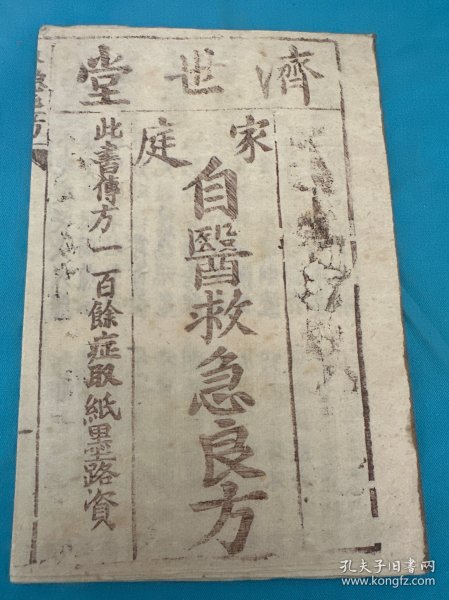 濟世堂
家庭
自醫救急良方
此書傳方一百餘症取紙墨路資
孔夫子旧书网
www.kongfz.com